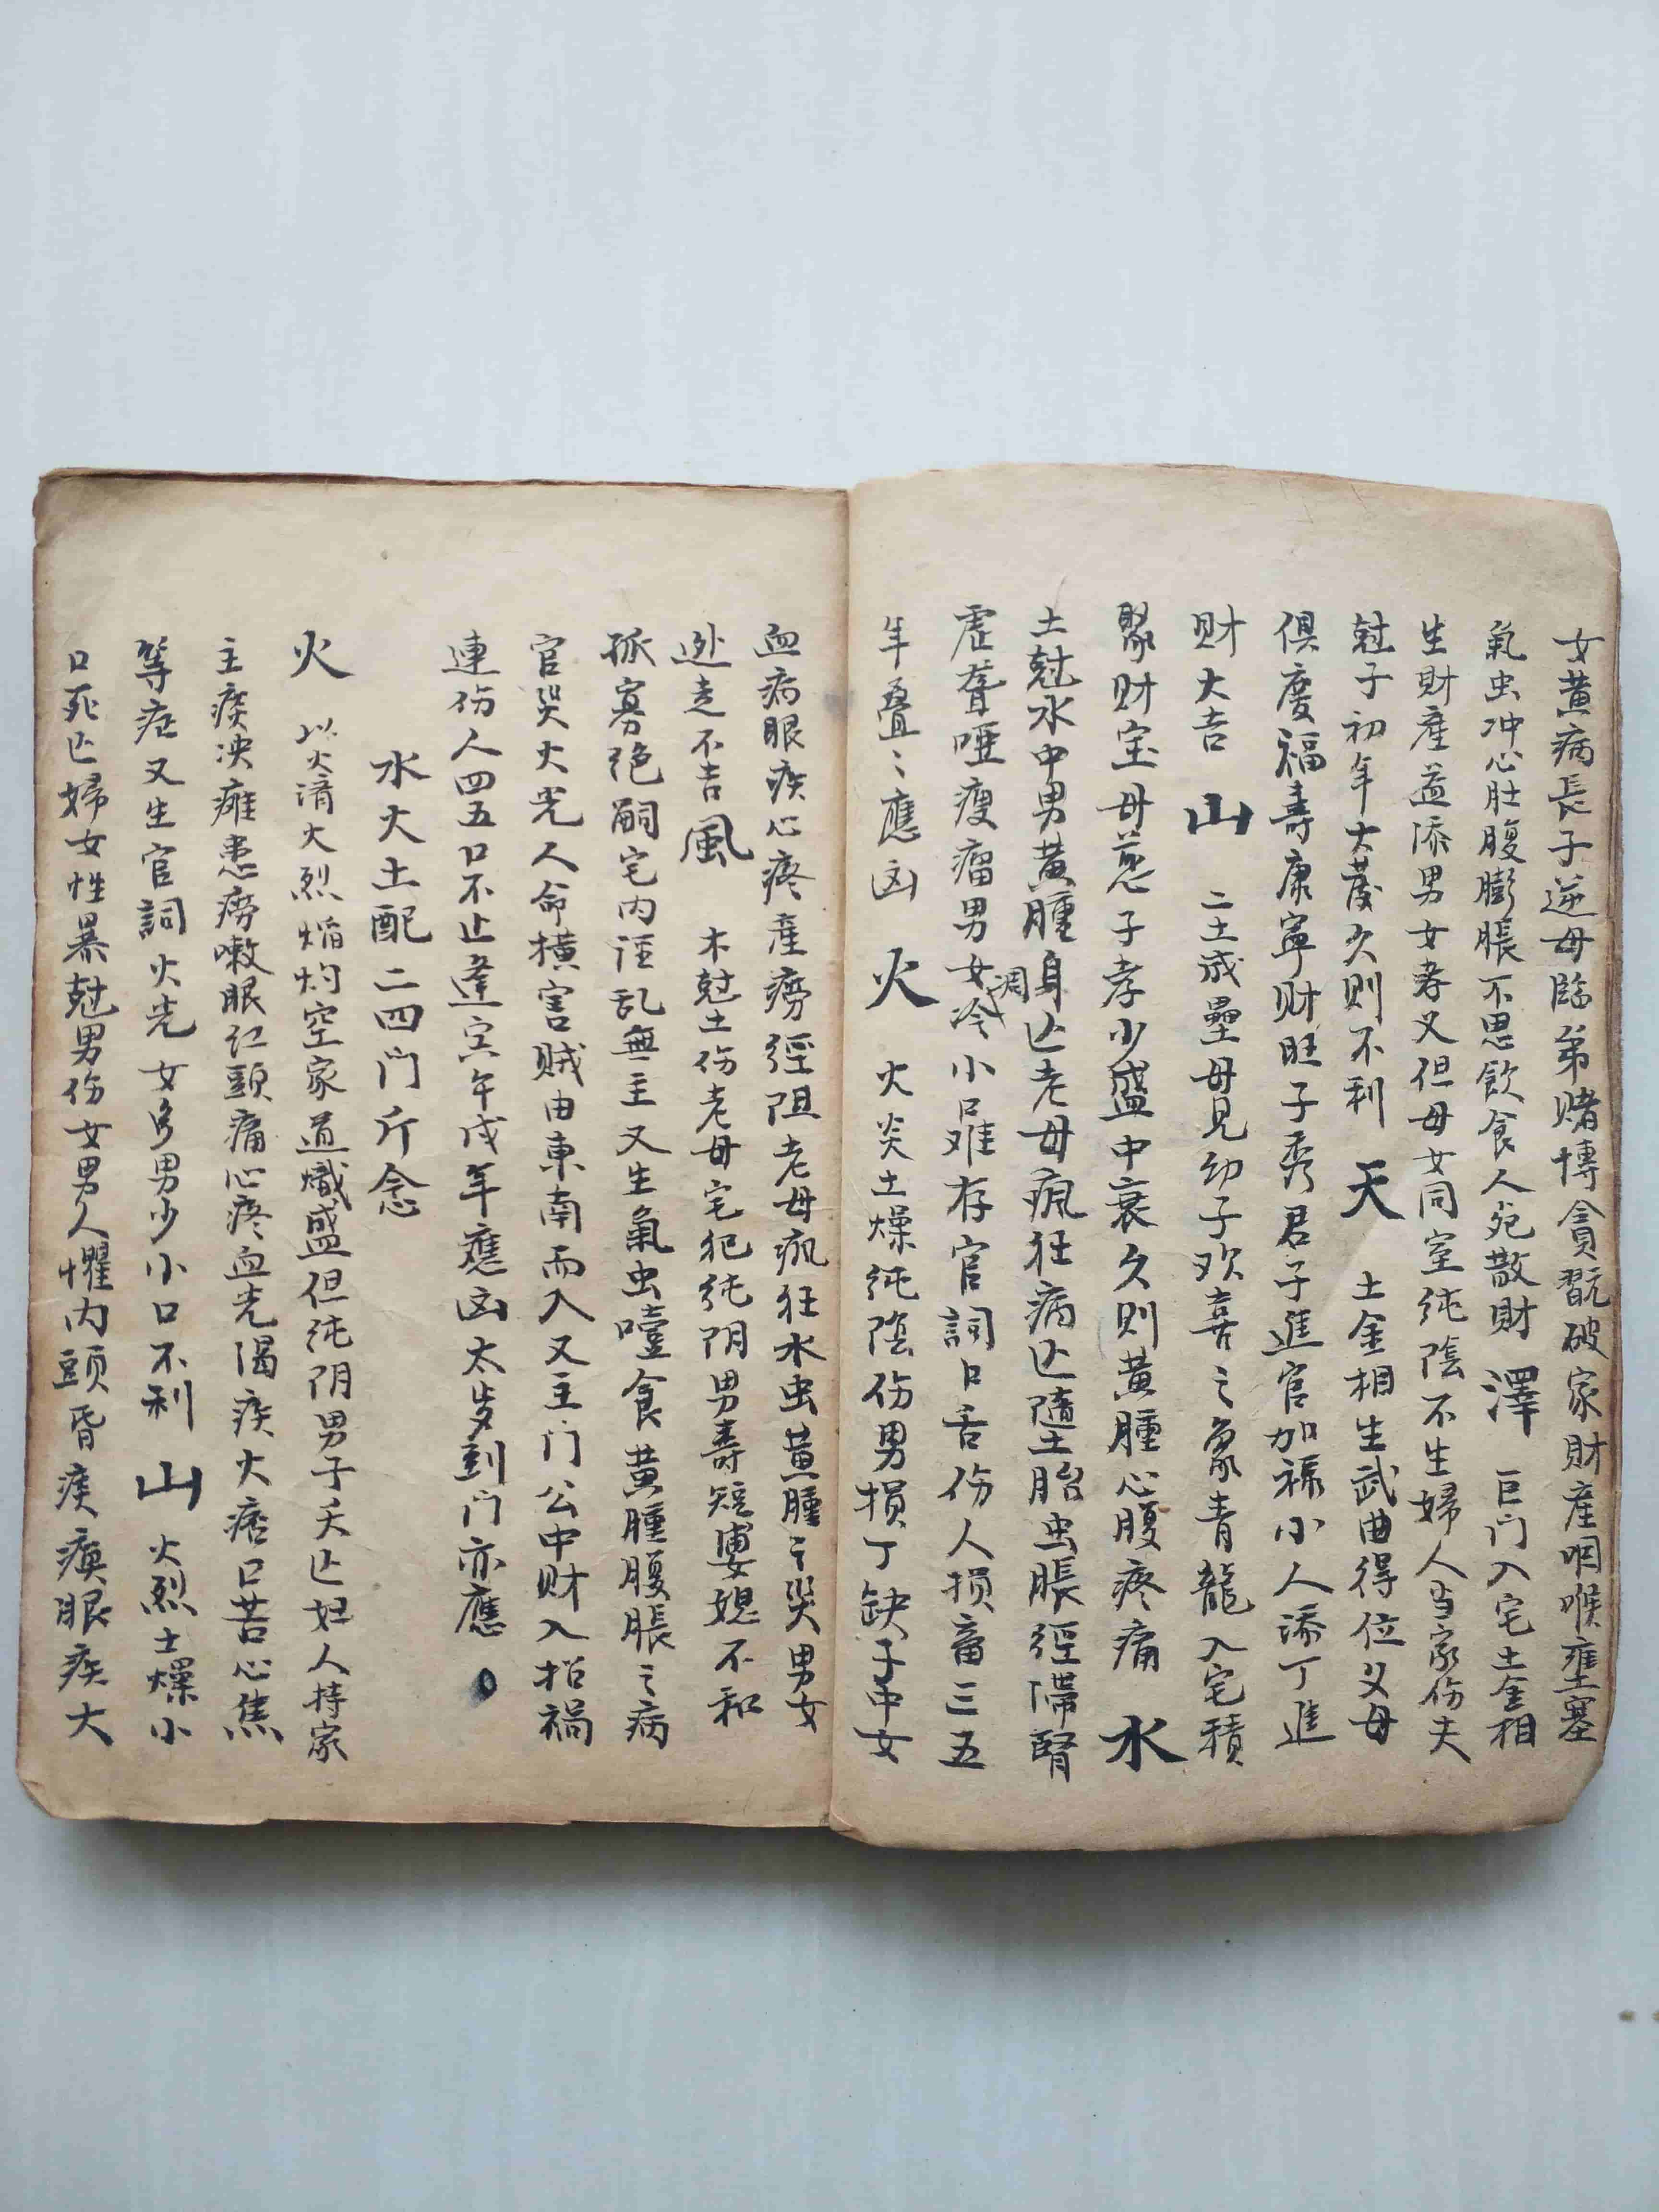 女黄病長子逆母臨弟赌博貪翫破家財産咽喉壅塞
氣虫冲心肚腹膨脹不思飲食人死散財 澤 巨门入宅土金相
生財産益添男女孝义但母女同室纯陰不生婦人当家伤夫
尅子初年大蔆久则不利 天 土金相生武曲得位父母
俱慶福寿康寧财旺子秀君子進官加禄小人添丁進
财大吉 山 二土成壘母見幼子欢喜之象青龍入宅積
聚财宝母慈子孝少盛中衰久则黄腫心腹疼痛 水
土尅水中男黄腫身亾老母疯狂病亾墮胎虫脹經滯腎
虚聋哑瘦瘤男女冷凋小口难存官詞口舌伤人损畜三五
年叠〻應凶 火 火炎土燥纯陰伤男损丁缺子中女
血病眼疾心疼産痨經阻老母疯狂水虫黄腫〻哭男女
迯走不吉風 木尅土伤老母宅犯纯阴男寿短婆媳不和
孤寡绝嗣宅内淫乱無主又生氣虫噎食黄腫腹脹之病
官哭火光人命横害贼由東南而入又主门公中财入招禍
連伤人四五口不止逢寅午戌年應凶太岁到门亦應
水火土配二四门斤念
火 以火濟火烈焰灼空家道熾盛但纯阴男子夭亾妇人持家
主痰决瘫患痨嗽眼红頭痛心疼血光渴疾大痞口苦心焦
等症又生官詞火光女多男少小口不利 山 火烈土燥小
口死亾婦女性暴尅男伤女男人懼内頭昏痰痪眼疾大